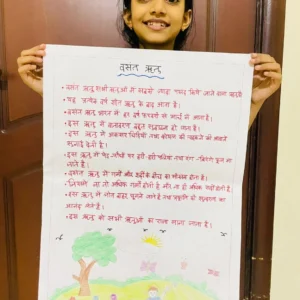 वसंत ऋतु
• वसंत ऋतु सभी ऋतुओं में सबसे ज्यादा पसंद किये जाने वाला
• यह प्रत्येक वर्ष शीत ऋतु के बाद आता है।
• वसंत ऋतु भारत में हर वर्ष फरवरी से मार्च में आता है।
• इस ऋतु में वातावरण बहुत सुहावना हो जाता है।
• इस ऋतु में अक्सर चिड़ियों तथा कोयल की चहकने की आवाजें
सुनाई देती है।
• इस ऋतु में पेड़-पौधों पर हरी-हरी पत्तियां तथा रंग-बिरंगे फूल आ
जाते हैं।
• वसंत ऋतु में गर्मी और सर्दी के बीच का मौसम होता है।
• जिसमें ना तो अधिक गर्मी होती है और ना ही अधिक सर्दी होती है।
• इस ऋतु में लोग बाहर घूमने जाते हैं तथा प्रकृति की सुन्दरता का
आनंद लेते हैं।
• इस ऋतु को सभी ऋतुओं का राजा माना जाता है।